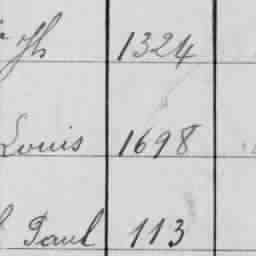 Jh 1324
Louis 1698
Paul 113